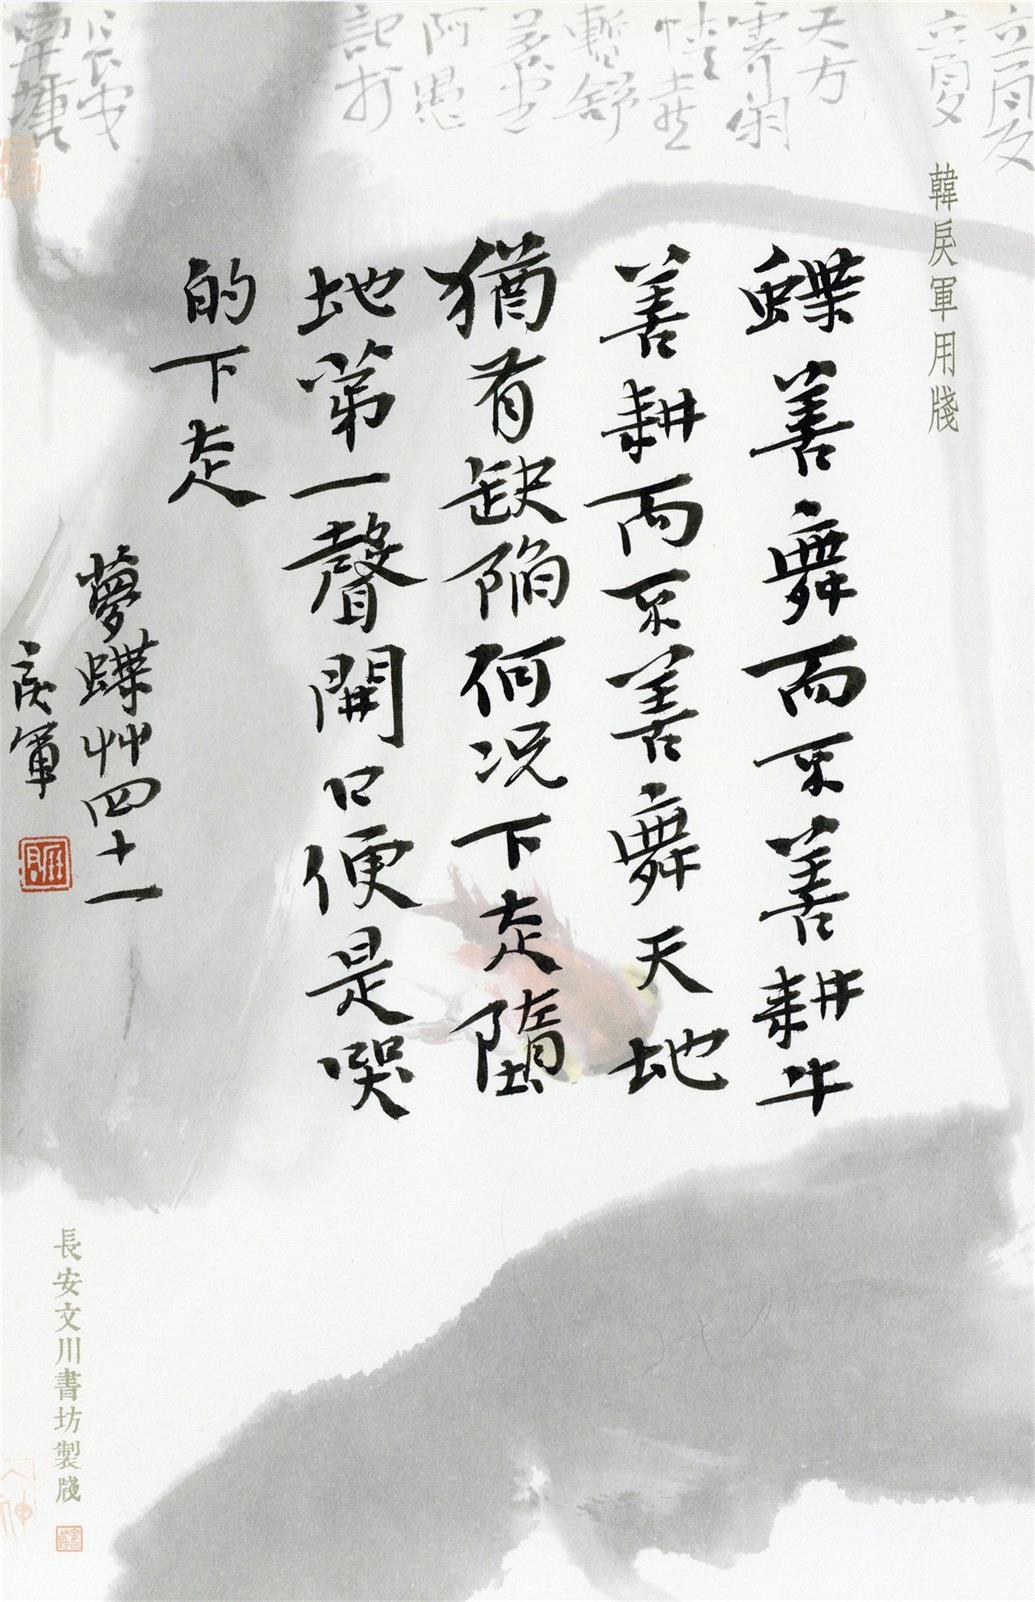 韓戾軍用牋
蝶善舞而不善耕牛
善耕而不善舞天地
猶有缺陷何況下走墮
地第一聲開口便是哭
的下走
夢蝶艸四十一
戾軍
長安文川書坊製牋
立夏
天方
暫舒
阿愚
記於